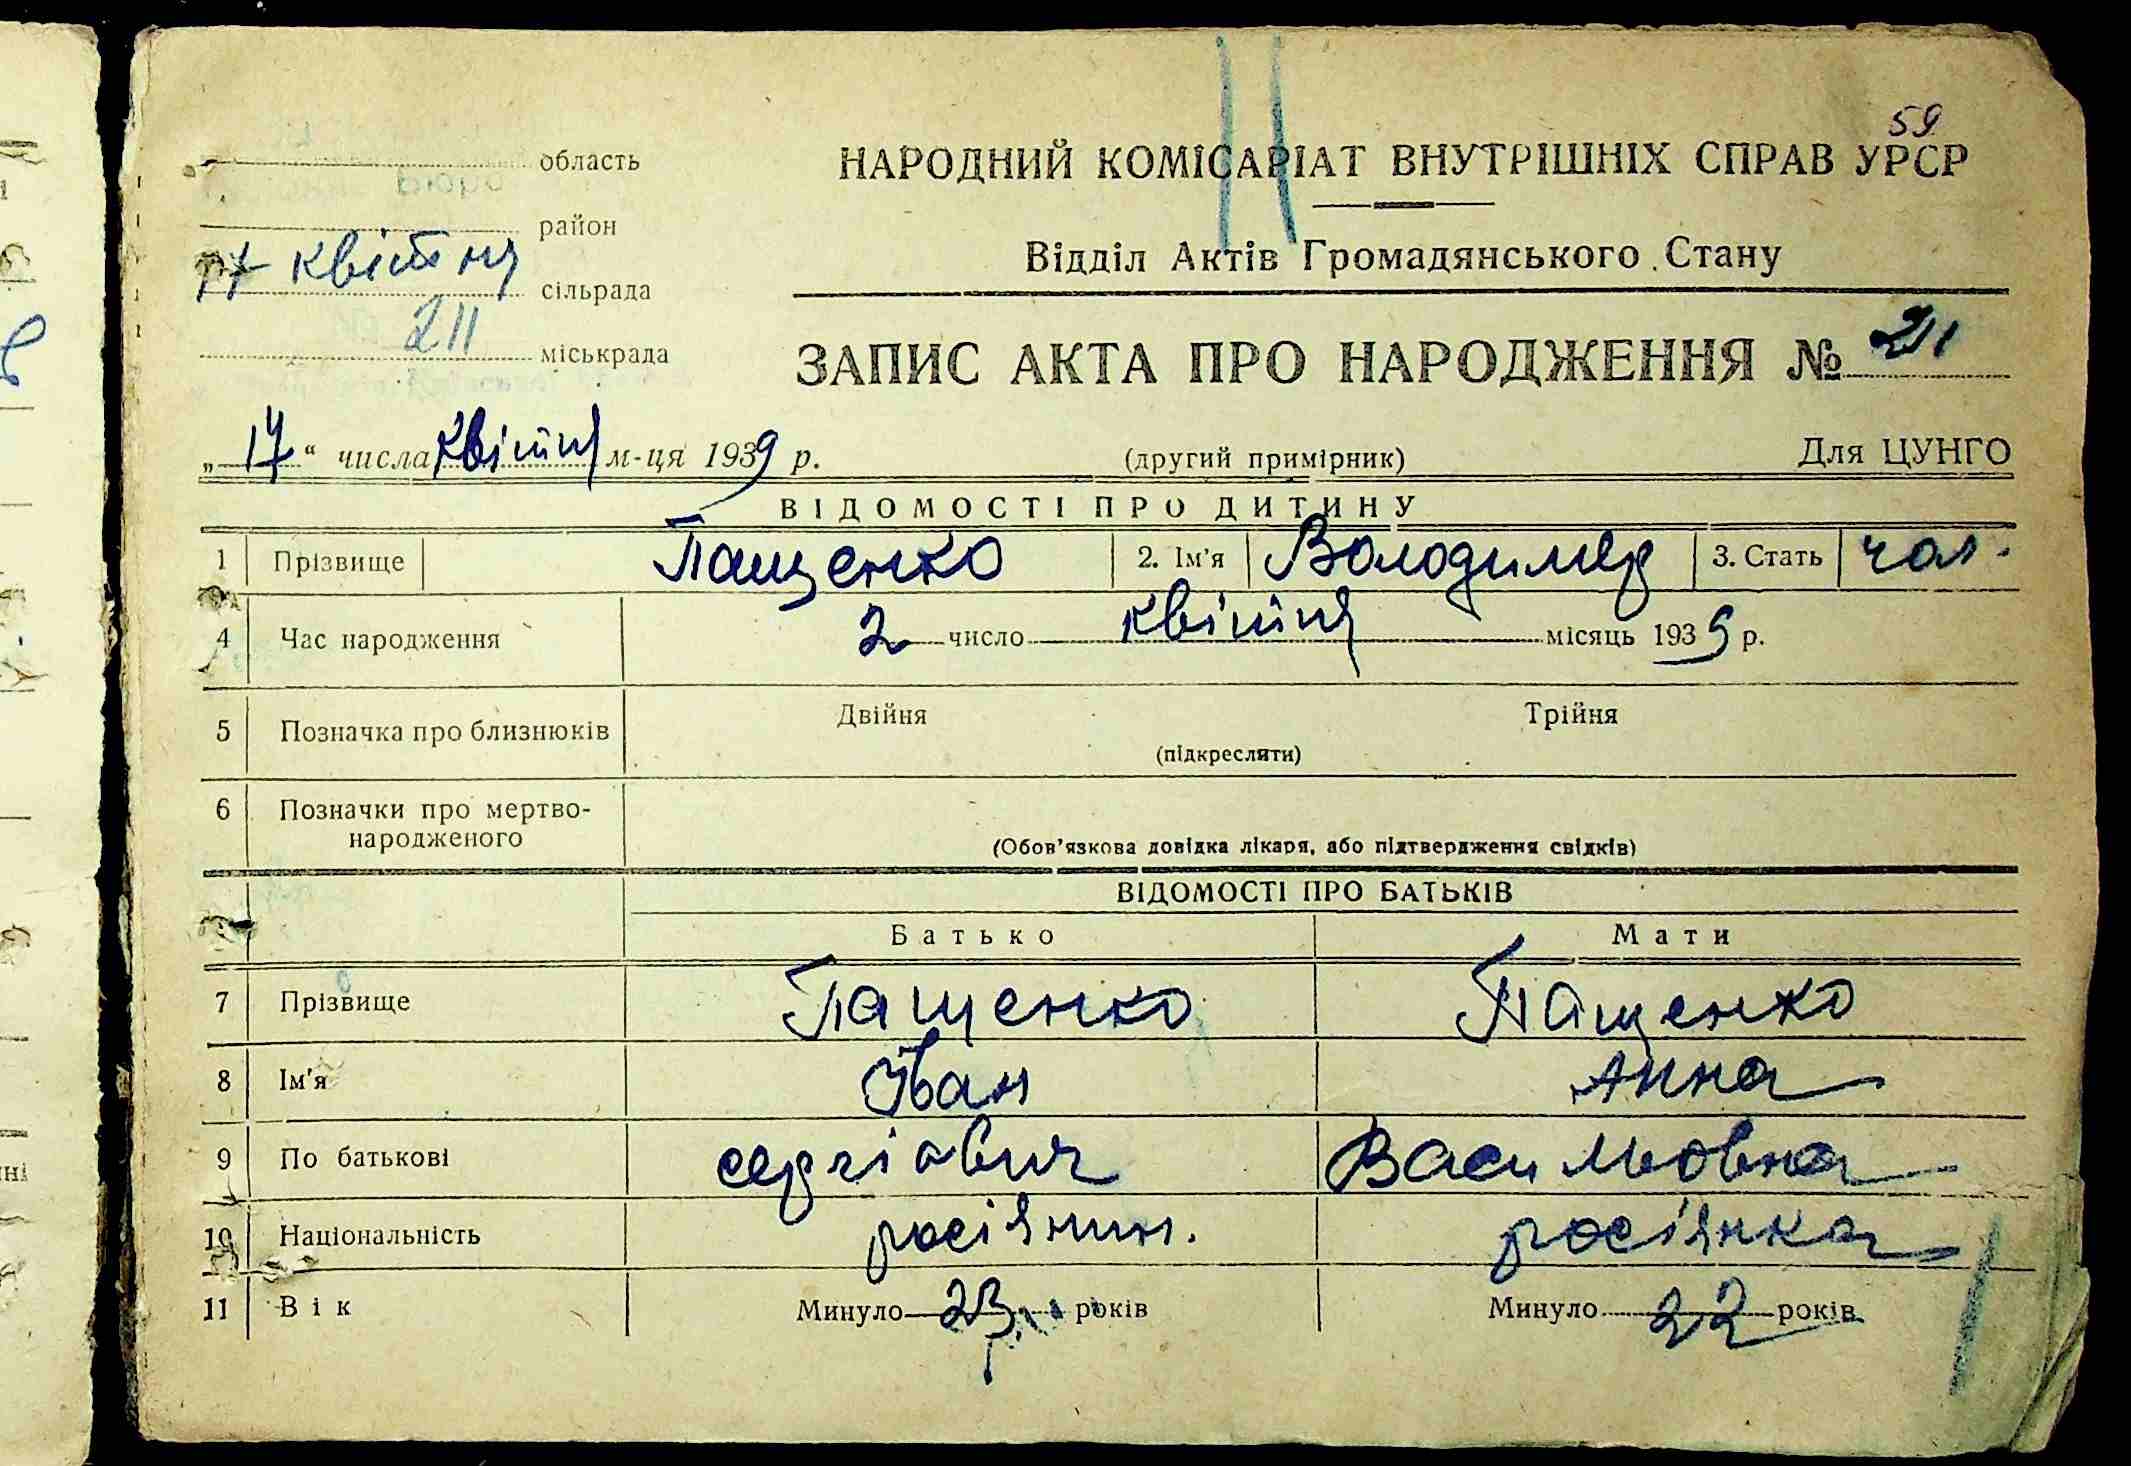 59
область
НАРОДНИЙ КОМІСАРІАТ ВНУТРІШНІХ СПРАВ УРСР
район
17 квітня
сільрада
Відділ Актів Громадянського Стану
211
міськрада
ЗАПИС АКТА ПРО НАРОДЖЕННЯ № 211
„17“ числа квітня м-ця 1939 р. (другий примірник) Для ЦУНГО
ВІДОМОСТІ ПРО ДИТИНУ
1 Прізвище Пащенко 2. Ім'я Володимер 3. Стать чол.
4 Час народження 2 число квітня місяць 1939 р.
5 Позначка про близнюків Двійня Трійня
(підкреслити)
6 Позначки про мертво-
народженого
(Обов'язкова довідка лікаря, або підтвердження свідків)
ВІДОМОСТІ ПРО БАТЬКІВ
Батько Мати
7 Прізвище Пащенко Пащенко
8 Ім'я Іван Анна
9 По батькові сергіавич Васильовна
10 Національність росіянин. росіянка
11 Вік Минуло 23 років Минуло 22 років